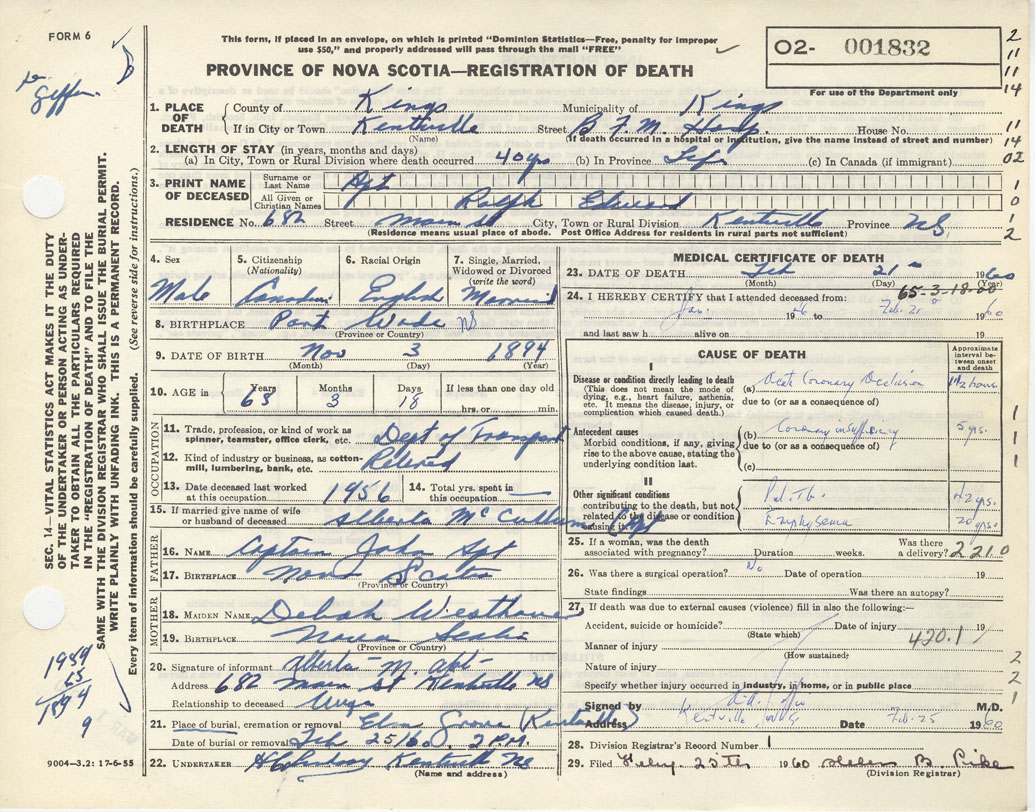 FORM 6
This form, if placed in an envelope, on which is printed "Dominion Statistics—Free, penalty for improper
use $50," and properly addressed will pass through the mail "FREE"
O2- 001832
PROVINCE OF NOVA SCOTIA—REGISTRATION OF DEATH
For use of the Department only
1. PLACE OF DEATH
County of Kings Municipality of Kings
If in City or Town Kentville Street B.F.M. Hosp. House No.
(Name) (If death occurred in a hospital or institution, give the name instead of street and number)
2. LENGTH OF STAY (in years, months and days)
(a) In City, Town or Rural Division where death occurred 40 yrs (b) In Province Life (c) In Canada (if immigrant)
3. PRINT NAME OF DECEASED
Surname or Last Name Apt
All Given or Christian Names Ralph Edward
RESIDENCE No. 682 Street Main St City, Town or Rural Division Kentville Province NS
(Residence means usual place of abode. Post Office Address for residents in rural parts not sufficient)
4. Sex
Male
5. Citizenship
(Nationality)
Canadian
6. Racial Origin
English
7. Single, Married,
Widowed or Divorced
(write the word)
Married
8. BIRTHPLACE Port Wade NS
(Province or Country)
9. DATE OF BIRTH Nov 3 1894
(Month) (Day) (Year)
10. AGE in
Years Months Days If less than one day old
63 3 18 hrs. or min.
OCCUPATION
11. Trade, profession, or kind of work as
spinner, teamster, office clerk, etc. Dept of Transport
12. Kind of industry or business, as cotton-
mill, lumbering, bank, etc. Retired
13. Date deceased last worked
at this occupation 1956
14. Total yrs. spent in
this occupation —
15. If married give name of wife
or husband of deceased Alberta McCullum Apt
FATHER
16. NAME Captain John Apt
17. BIRTHPLACE Nova Scotia
(Province or Country)
MOTHER
18. MAIDEN NAME Deborah
19. BIRTHPLACE Nova Scotia
(Province or Country)
20. Signature of informant Alberta M Apt
Address 682 Main St Kentville NS
Relationship to deceased Wife
21. Place of burial, cremation or removal Elm Grove (Kentville)
Date of burial or removal Feb 25 1960 2 P.M.
22. UNDERTAKER Kentville NS
(Name and address)
9004—3.2: 17-6-55
MEDICAL CERTIFICATE OF DEATH
23. DATE OF DEATH Feb 21 1960
(Month) (Day) (Year)
65-3-18-00
24. I HEREBY CERTIFY that I attended deceased from:
Jan. 1946 to Feb. 21 1960
and last saw h alive on 19
CAUSE OF DEATH
Approximate interval between onset and death
I
Disease or condition directly leading to death
(This does not mean the mode of
dying, e.g., heart failure, asthenia,
etc. It means the disease, injury, or
complication which caused death.)
(a) Acute Coronary Occlusion 1½ hours
due to (or as a consequence of)
Antecedent causes
Morbid conditions, if any, giving
rise to the above cause, stating the
underlying condition last.
(b) Coronary insufficiency 5 yrs.
due to (or as a consequence of)
(c)
II
Other significant conditions
contributing to the death, but not
related to the disease or condition
causing it.
Pul. Tb.
Emphysema 20 yrs.
25. If a woman, was the death
associated with pregnancy? Duration weeks. Was there
a delivery? 2210
26. Was there a surgical operation? No Date of operation 19
State findings Was there an autopsy?
27. If death was due to external causes (violence) fill in also the following:—
Accident, suicide or homicide? Date of injury 19
(State which)
Manner of injury 420.1
(How sustained)
Nature of injury
Specify whether injury occurred in industry, in home, or in public place
Signed by M.D.
Address Kentville, N.S. Date Feb. 25 1960
28. Division Registrar's Record Number 1
29. Filed Feby. 25th 1960 Helen B. Pike
(Division Registrar)
SEC. 14—VITAL STATISTICS ACT MAKES IT THE DUTY
OF THE UNDERTAKER OR PERSON ACTING AS UNDER-
TAKER TO OBTAIN ALL THE PARTICULARS REQUIRED
IN THE "REGISTRATION OF DEATH" AND TO FILE THE
SAME WITH THE DIVISION REGISTRAR WHO SHALL ISSUE THE BURIAL PERMIT.
WRITE PLAINLY WITH UNFADING INK. THIS IS A PERMANENT RECORD.
Every item of information should be carefully supplied. (See reverse side for instructions.)
1959
65
1894
9
2
11
11
14
11
14
02
1
0
1
2
1
1
1
1
2
2
1